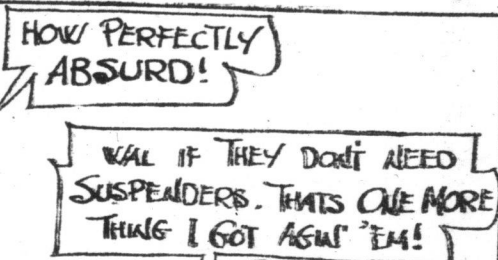 HOW PERFECTLY
ABSURD!
WAL IF THEY DON'T NEED
SUSPENDERS. THATS ONE MORE
THING I GOT AGIN' 'EM!